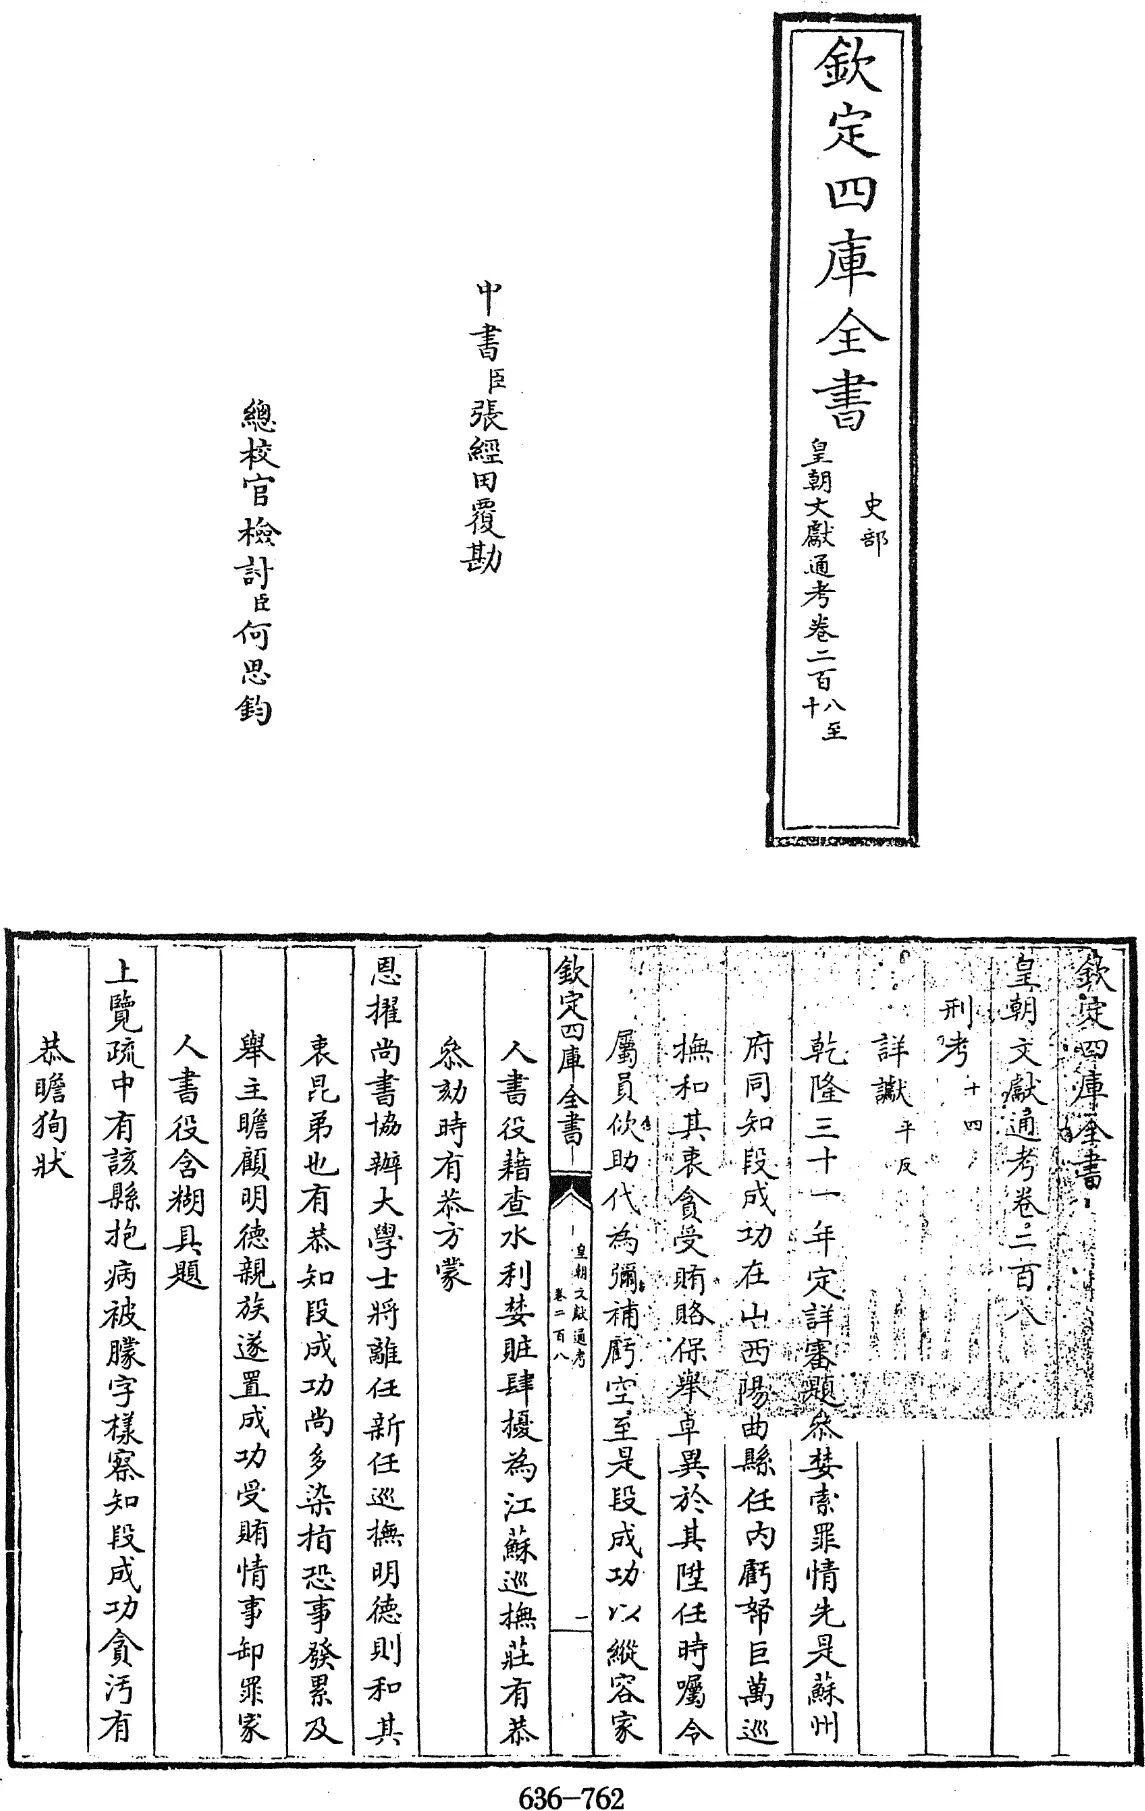 欽定四庫全書
史部
皇朝文獻通考卷二百八至
十
中書臣張經田覆勘
總校官檢討臣何思鈞
欽定四庫全書
皇朝文獻通考卷二百八
刑考十四
詳讞平反
乾隆三十一年定詳審題叅婪索罪情先是蘇州
府同知段成功在山西陽曲縣任内虧帑巨萬巡
撫和其衷貪受賄賂保舉卓異於其陞任時囑令
屬員佽助代為彌補虧空至是段成功以縱容家
欽定四庫全書
皇朝文獻通考
卷二百八
一
人書役藉查水利婪贓肆擾為江蘇巡撫莊有恭
叅劾時有恭方蒙
恩擢尚書協辦大學士將離任新任巡撫明德則和其
衷昆弟也有恭知段成功尚多染指恐事發累及
舉主瞻顧明德親族遂置成功受賄情事卸罪家
人書役含糊具題
上覽疏中有該縣抱病被朦字樣察知段成功貪汚有
恭瞻狥狀
636-762